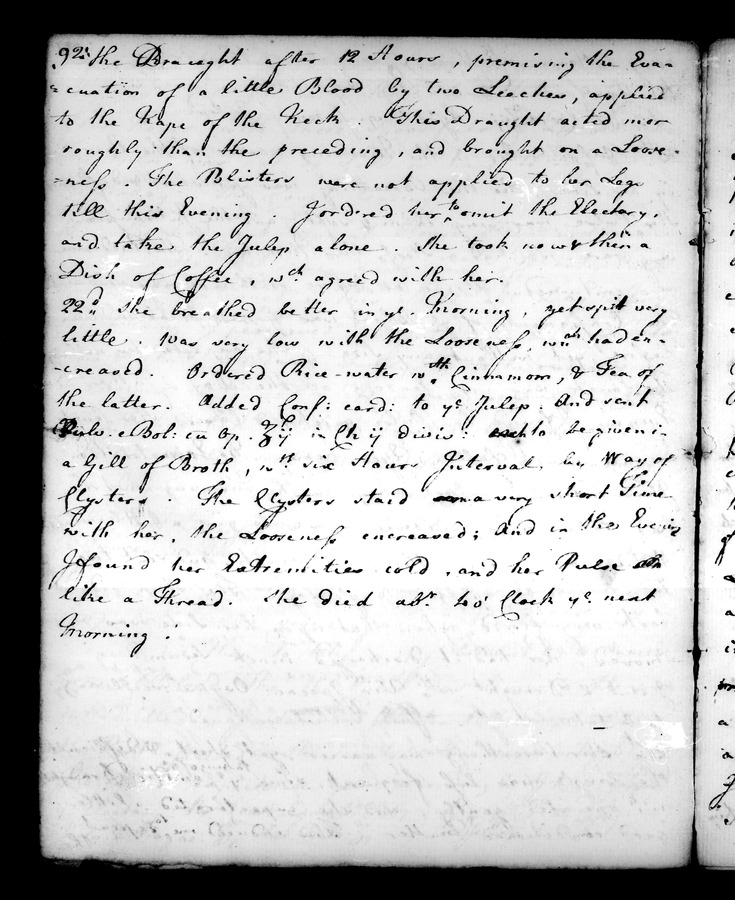 92. the Draught after 12 Hours, premising the Eva=
=cuation of a little Blood by two Leaches, applied
to the Nape of the Neck. This Draught acted mor
roughly than the preceding, and brought on a Loose-
=ness. The Blisters were not applied to her Legs
till this Evening. I ordered her to omit the Electary,
and take the Julep alone. She took now & then a
Dish of Coffee, wch agreed with her.
22d She breathed better in ye. Morning, yet spit very
little. Was very low with the Looseness, wch had en-
-creased. Ordered Rice-water wth Cinnamom, & Tea of
the latter. Added Conf: card: to ye Julep. And sent
Pulv. e Bol: cu Op. in Ch ij divis: to be given i-
a Gill of Broth, wth six Hours Interval, by Way of
Clysters. The Clysters staid a very short Time
with her, the Looseness encreased; And in the Evening
I found her Extremities cold, and her Pulse
like a Thread. She died abt. Clock ye. next
Morning.